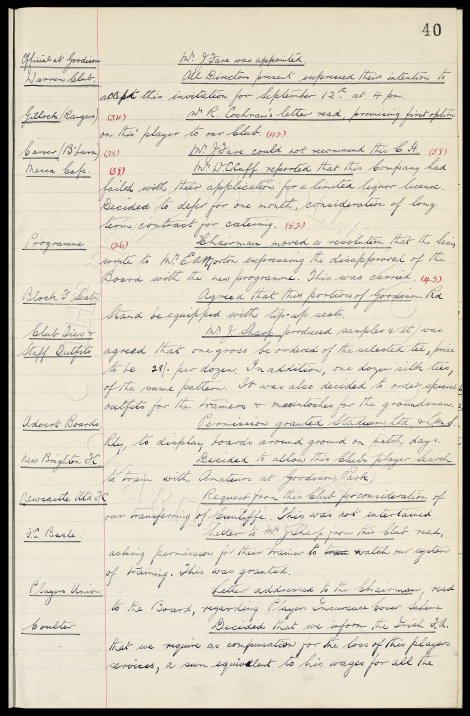 40
Official at Goodison Mr. J Fare was appointed.
Warren Club. All Directors present expressed their intention to
accept this invitation for September 12th at 4 pm.
Gillick (Rangers) (34) Mr R. Cochran's letter read, promising first option
on this player to our Club. (42)
Carver (B'burn) (35) Mr J Fare could not recommend this C.H. (58)
Mecca Cafe. (38) Mr W.C Cuff reported that this Company had
failed with their application for a limited liquor licence.
Decided to defer for one month, consideration of long
term contract for catering. (52)
Programme (26) Chairman moved a resolution that the Secy
write to Mr E A Morton expressing the disapproval of the
Board with the new programme. This was carried. (43)
Block F Seats Agreed that this portion of Goodison Rd
Stand be equipped with tip-up seats.
Club Ties & Mr J Sharp produced samples & it was
Staff Outfits agreed that one gross be ordered of the selected tie, price
to be 28/- per dozen. In addition, one dozen silk ties,
of the same pattern. It was also decided to order special
outfits for the trainers & macintoshes for the groundsmen.
Advert Boards Permission granted Stadium Ltd &
to display boards around ground on match days.
New Brighton F.C. Decided to allow this Club's player Search
to train with Amateurs at Goodison Park
Newcastle Utd F.C Request from this Club for consideration of
our transferring of Cunliffe. This was not entertained
F.C. Basle. Letter to Mr J Sharp from this Club read,
asking permission for their trainer to watch our system
of training. This was granted.
Players Union Letter addressed to the Chairman, read
to the Board, regarding Players Insurance Cover Scheme
Coulter Decided that we inform the Irish F.A.
that we require as compensation for the loss of this players
services, a sum equivalent to his wages for all the